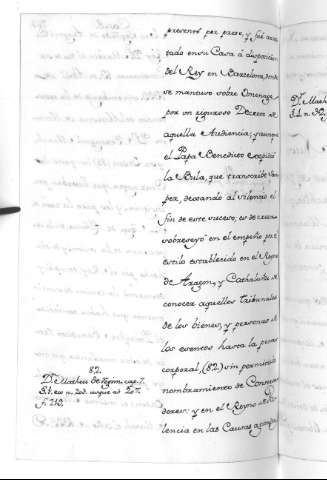 presentó por preso, y fué arres
tado en su Casa á disposicion
del Rey en Barcelona, donde
se mantuvo sobre Omenage
por un riguroso Decreto de
aquella Audiencia; y aunque
el Papa Benedicto expidió
la Bula, que transcribe
per, dexando al silencio el
fin de este suceso; es de creer
sobreseyó en el empeño por el
estilo establecido en el Reyno
de Aragon, y Cathaluña de
conocer aquellos tribunales
de los bienes, y personas de
los exentos hasta la pena
corporal, (82.) sin permitir
nombramientos de Conserva
dores: y en el Reyno de Va
lencia en las Causas
82.
D.ⁿ Matheu de Regim. cap. 7.
§. 1. ex n. 202. usque ad 207.
f. 212.
D.ⁿ Matheu
§. 1. n.